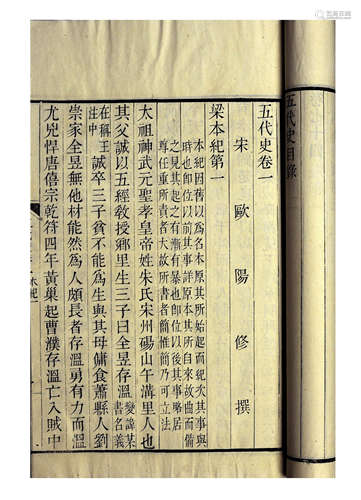 五代史卷一
宋歐陽修撰
梁本紀第一
本紀因舊以為名本原其所始起而紀次其事與
時也即位以前其事詳原本其所自來故曲而備
之見其起之有漸有暴也即位以後其事略居
尊任重所責者大故所書者簡惟簡乃可立法
太祖神武元聖孝皇帝姓朱氏宋州碭山午溝里人也
其父誠以五經教授鄉里生三子曰全昱存溫變諱某書名義
在稱王注中誠卒三子貧不能為生與其母傭食蕭縣人劉
崇家全昱無他材能然為人頗長者存溫勇有力而溫
尤兇悍唐僖宗乾符四年黃巢起曹濮存溫亡入賊中
五代史目錄